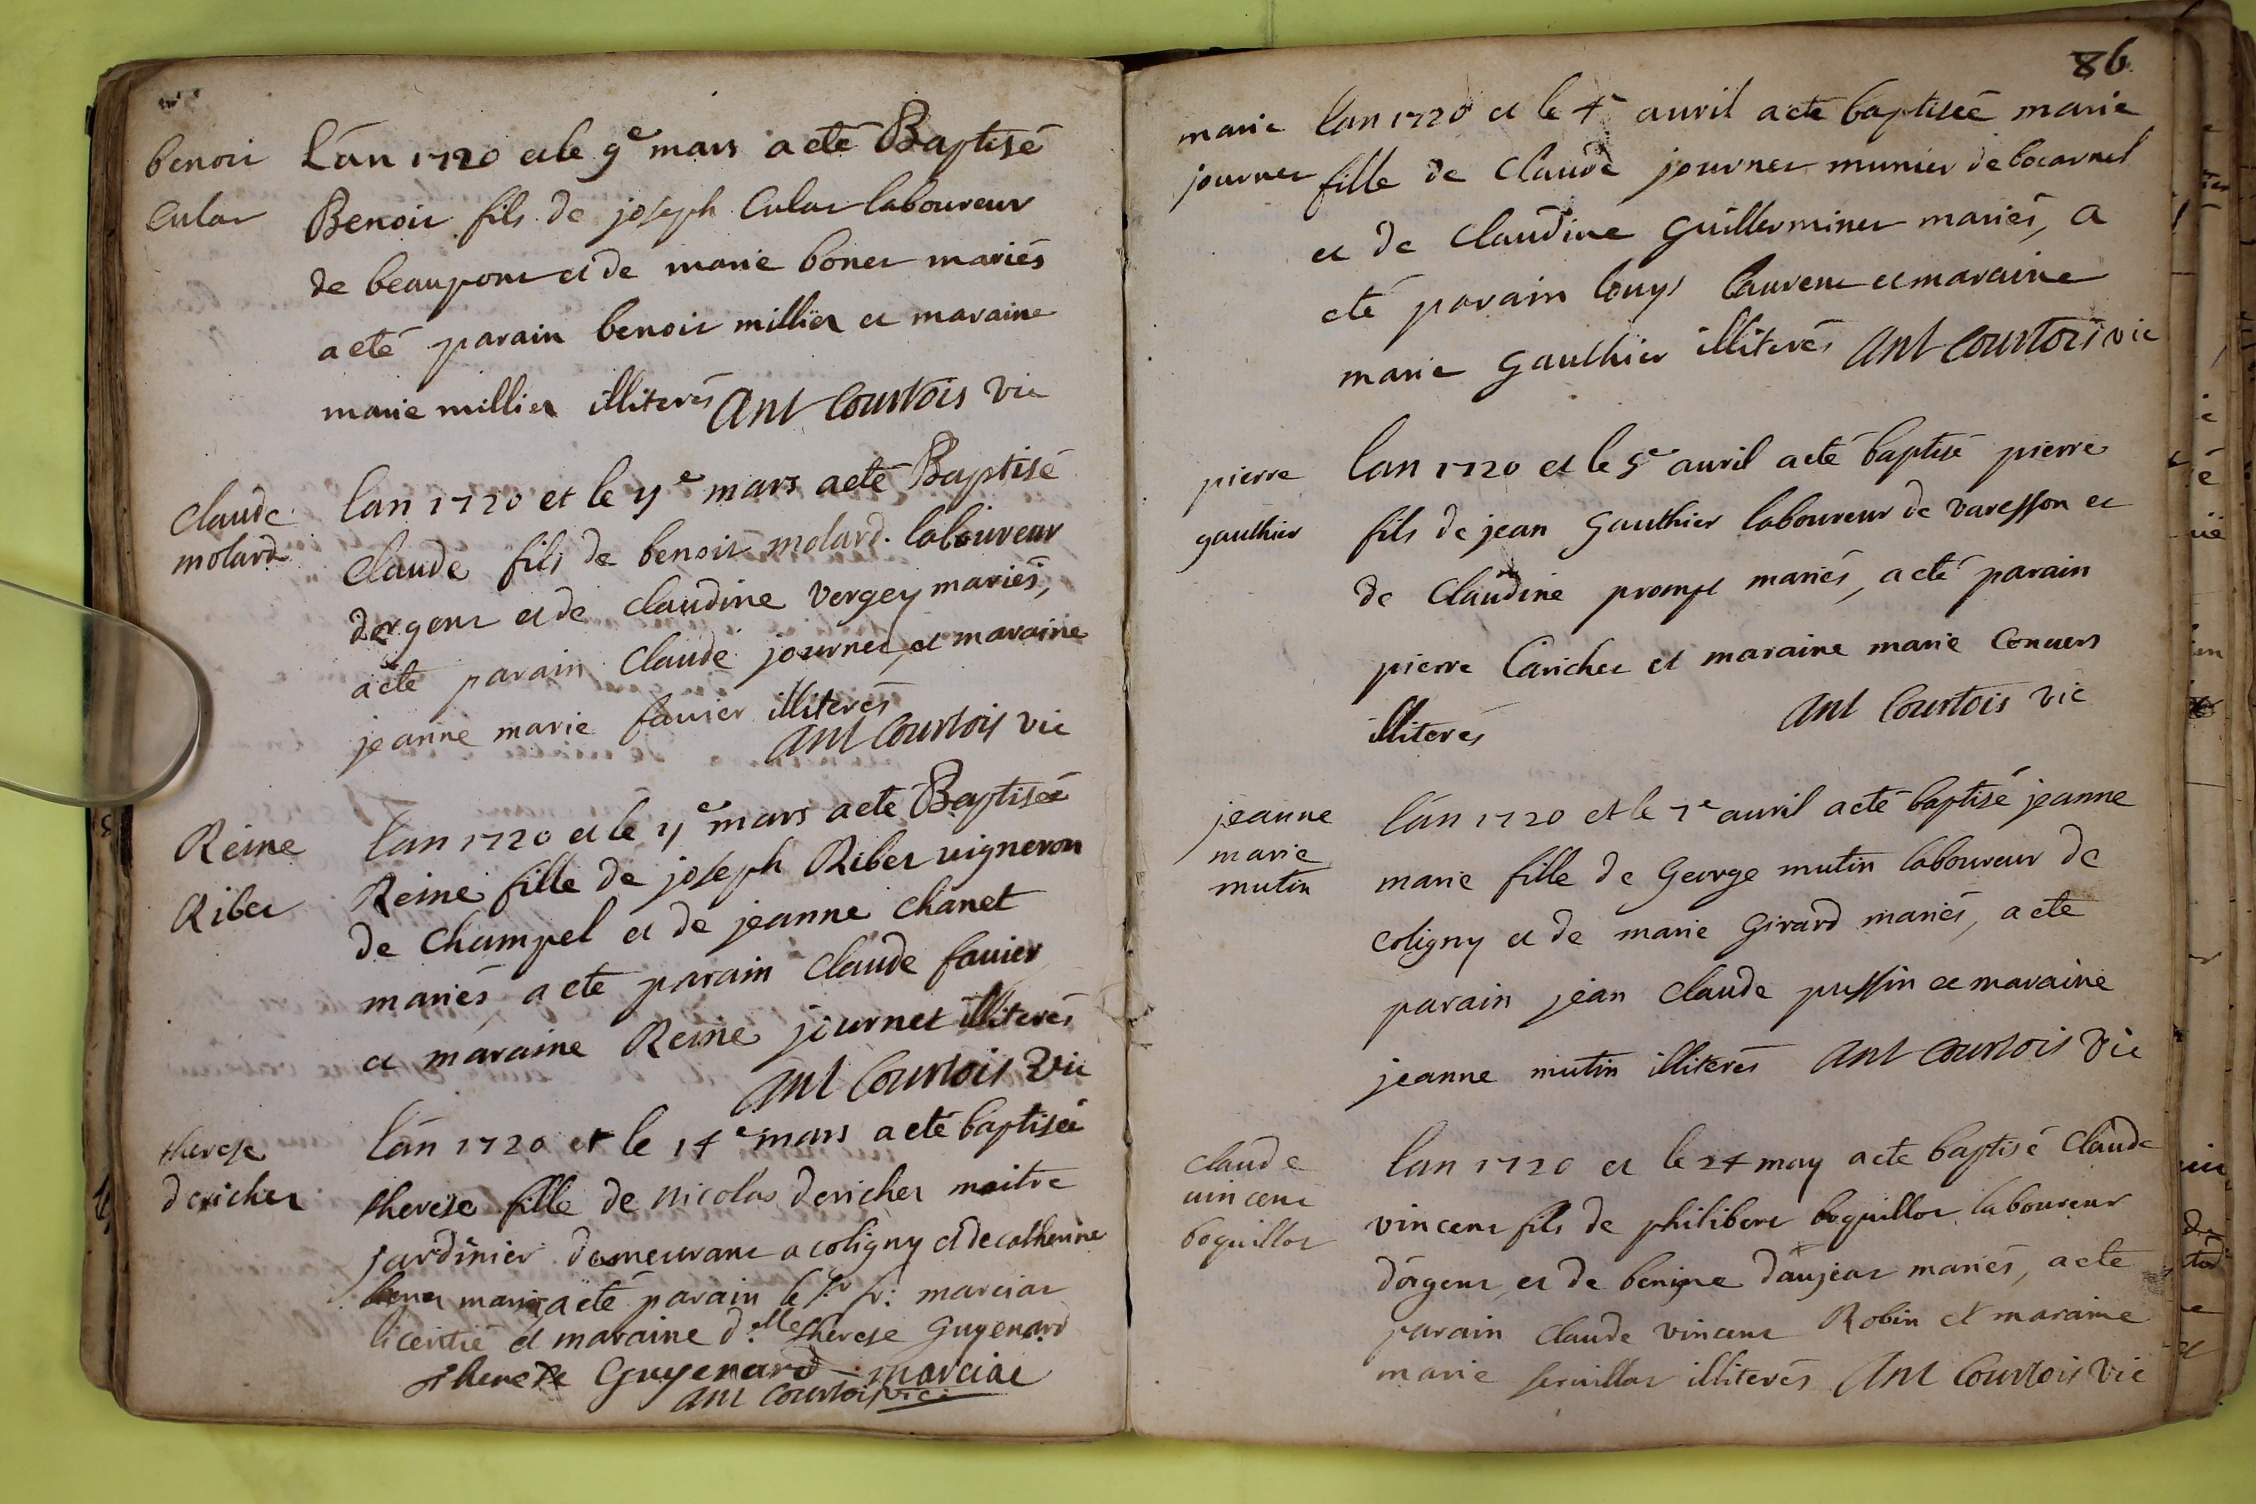 benoit
Cular
L'an 1720 et le 9e mars a eté Baptisé
Benoit fils de joseph Cular laboureur
de beaupont et de marie bonet mariés
a eté parain benoit millier et maraine
marie millier illiterés Ant Courtois vic
Claude
molard
lan 1720 et le 11e mars a eté Baptisé
Claude fils de benoit molard laboureur
dorgent et de claudine vergey mariés,
a eté parain Claude journet, et maraine
jeanne marie favier illiterés
Ant Courtois vic
Reine
Ribet
lan 1720 et le 11e mars a eté Baptiseé
Reine fille de joseph Ribet vigneron
de Champel et de jeanne Chanet
mariés, a eté parain Claude favier
et maraine Reine journet illiterés
Ant Courtois vic
therese
derichet
lan 1720 et le 14e mars a eté baptiseé
therese fille de nicolas derichet maitre
jardinier demeurant a coligny et de catherine
mariés a eté parain le sr fr: marciat
licentié et maraine d.elle therese Guyenard
therese Guyenard marciat
Ant Courtois vic:
86
marie
journet
lan 1720 et le 4e avril a eté baptiseé marie
fille de Claude journet munier de bocarnel
et de Claudine Guillerminet mariés, a
eté parain louys laurent et maraine
marie Gauthier illiterés Ant Courtois vic
pierre
gauthier
lan 1720 et le 5e avril a eté baptisé pierre
fils de jean Gauthier laboureur de varesson et
de Claudine prompt mariés, a eté parain
pierre Carichet et maraine marie Convers
illiterés
Ant Courtois vic
jeanne
marie
mutin
lan 1720 et le 7e avril a eté baptisé jeanne
marie fille de George mutin laboureur de
coligny et de marie Girard mariés, a eté
parain jean Claude pussin et maraine
jeanne mutin illiterés Ant Courtois vic
claude
vincent
boguillot
lan 1720 et le 24 may a eté baptisé Claude
vincent fils de philibert boguillot laboureur
dorgent et de benigne daujeat mariés, a eté
parain claude vincent Robin et maraine
marie illiterés Ant Courtois vic